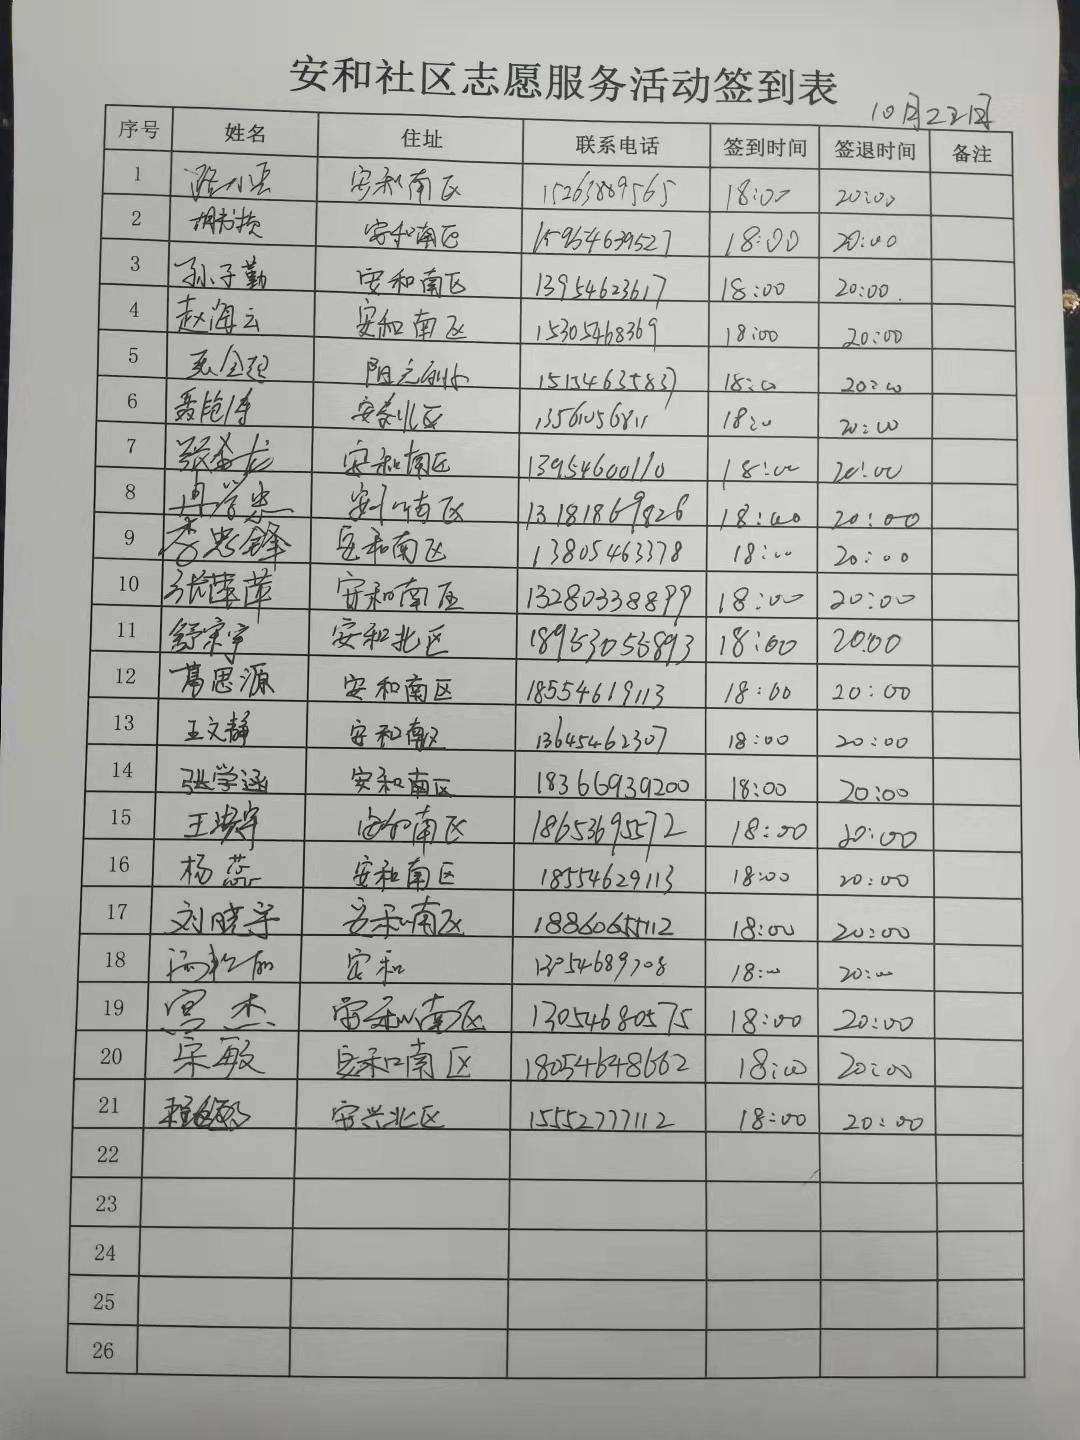 安和社区志愿服务活动签到表
10月22日
序号 姓名 住址 联系电话 签到时间 签退时间 备注
1 安和南区 15263889565 18:00 20:00
2 安和南区 15954639527 18:00 20:00
3 孙子勤 安和南区 13954623617 18:00 20:00
4 赵海云 安和南区 15305468369 18:00 20:00
5 18:00 20:00
6 安泰北区 13561056811 18:00 20:00
7 安和南区 13954600110 18:00 20:00
8 安和南区 13181869826 18:00 20:00
9 李忠锋 安和南区 13805463378 18:00 20:00
10 张萍萍 安和南区 13280338899 18:00 20:00
11 舒宗宇 安和北区 18953055893 18:00 20:00
12 葛思源 安和南区 18554619113 18:00 20:00
13 王文静 安和南区 13645462307 18:00 20:00
14 张学涵 安和南区 18366939200 18:00 20:00
15 安和南区 18653695572 18:00 20:00
16 杨蕊 安和南区 18554629113 18:00 20:00
17 刘晓宇 安和南区 18860655112 18:00 20:00
18 安和 18:00 20:00
19 杰 安和南区 13054680575 18:00 20:00
20 宋敏 安和南区 18054648662 18:00 20:00
21 安兴北区 15552777112 18:00 20:00
22
23
24
25
26